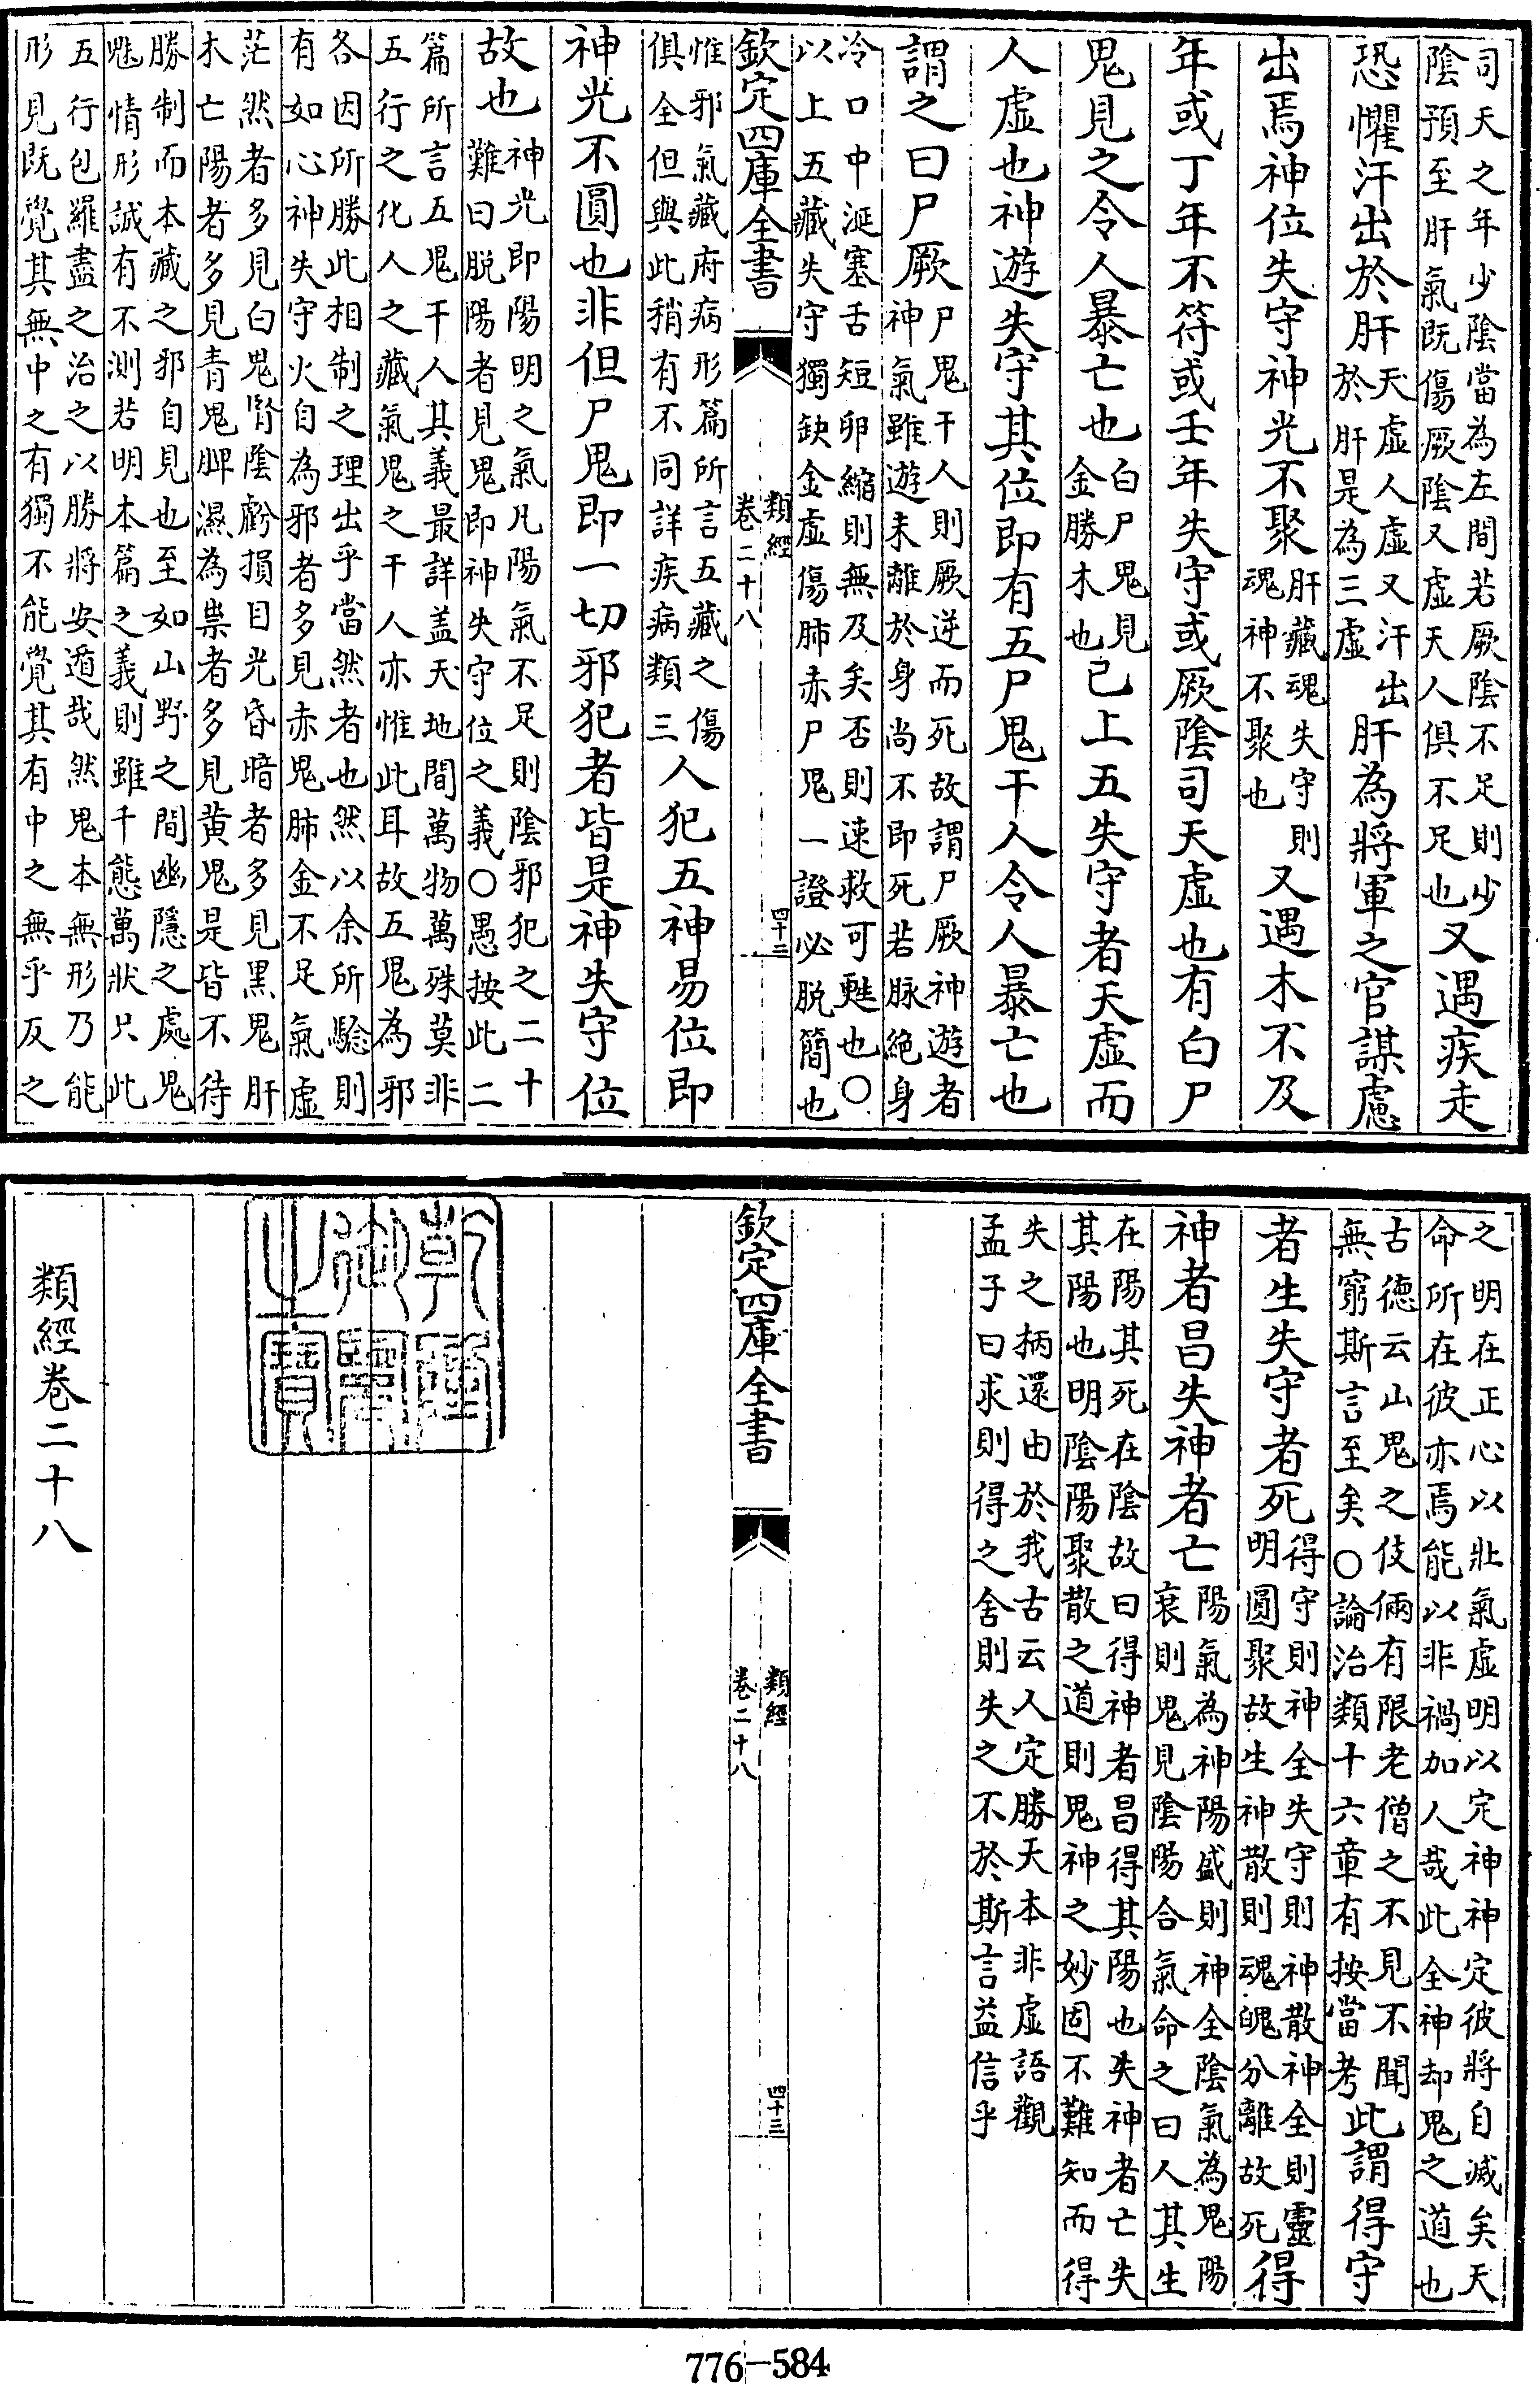 司天之年少陰當為左間若厥陰不足則少
陰預至肝氣既傷厥陰又虛天人俱不足也又遇疾走
恐懼汗出於肝天虛人虛又汗出
於肝是為三虛肝為將軍之官謀慮
出焉神位失守神光不聚肝藏魂失守則
魂神不聚也又遇木不及
年或丁年不符或壬年失守或厥陰司天虛也有白尸
鬼見之令人暴亡也白尸鬼見
金勝木也已上五失守者天虛而
人虛也神遊失守其位即有五尸鬼干人令人暴亡也
謂之曰尸厥尸鬼干人則厥逆而死故謂尸厥神遊者
神氣雖遊未離於身尚不即死若脉絶身
冷口中涎塞舌短卵縮則無及矣否則速救可甦也○
以上五藏失守獨缺金虛傷肺赤尸鬼一證必脱簡也
惟邪氣藏府病形篇所言五藏之傷
俱全但與此稍有不同詳疾病類三人犯五神易位即
神光不圓也非但尸鬼即一切邪犯者皆是神失守位
故也神光即陽明之氣凡陽氣不足則陰邪犯之二十
難曰脱陽者見鬼即神失守位之義○愚按此二
篇所言五鬼干人其義最詳盖天地間萬物萬殊莫非
五行之化人之藏氣鬼之干人亦惟此耳故五鬼為邪
各因所勝此相制之理出乎當然者也然以余所驗則
有如心神失守火自為邪者多見赤鬼肺金不足氣虛
茫然者多見白鬼腎陰虧損目光昏暗者多見黑鬼肝
木亡陽者多見青鬼脾濕為祟者多見黄鬼是皆不待
勝制而本藏之邪自見也至如山野之間幽隱之處鬼
魅情形誠有不測若明本篇之義則雖千態萬狀只此
五行包羅盡之治之以勝將安遁哉然鬼本無形乃能
形見既覺其無中之有獨不能覺其有中之無乎反之
欽定四庫全書
類經
卷二十八
四十三
之明在正心以壯氣虛明以定神神定彼將自滅矣天
命所在彼亦焉能以非禍加人哉此全神却鬼之道也
古德云山鬼之伎倆有限老僧之不見不聞
無窮斯言至矣○論治類十六章有按當考此謂得守
者生失守者死得守則神全失守則神散神全則靈
明圓聚故生神散則魂魄分離故死得
神者昌失神者亡陽氣為神陽盛則神全陰氣為鬼陽
衰則鬼見陰陽合氣命之曰人其生
在陽其死在陰故曰得神者昌得其陽也失神者亡失
其陽也明陰陽聚散之道則鬼神之妙固不難知而得
失之柄還由於我古云人定勝天本非虛語觀
孟子曰求則得之舍則失之不於斯言益信乎
欽定四庫全書
類經
卷二十八
四十三
乾隆
御覽
之寶
類經卷二十八
776-584